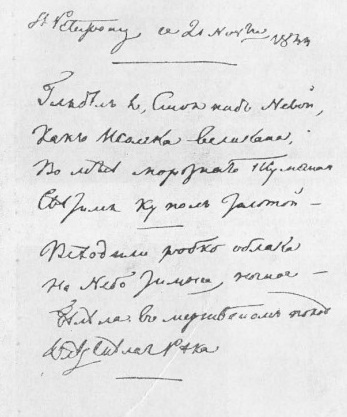 St Petersbourg, ce 21 Novbre 1844
Глядѣлъ я, стоя надъ Невой,
Какъ Исаака великана,
Во мглѣ морознаго тумана
Свѣтился куполъ золотой —
Всходили робко облака
На небо зимнее, ночное —
Бѣлѣла въ мертвенномъ покоѣ
Оледенѣлая рѣка